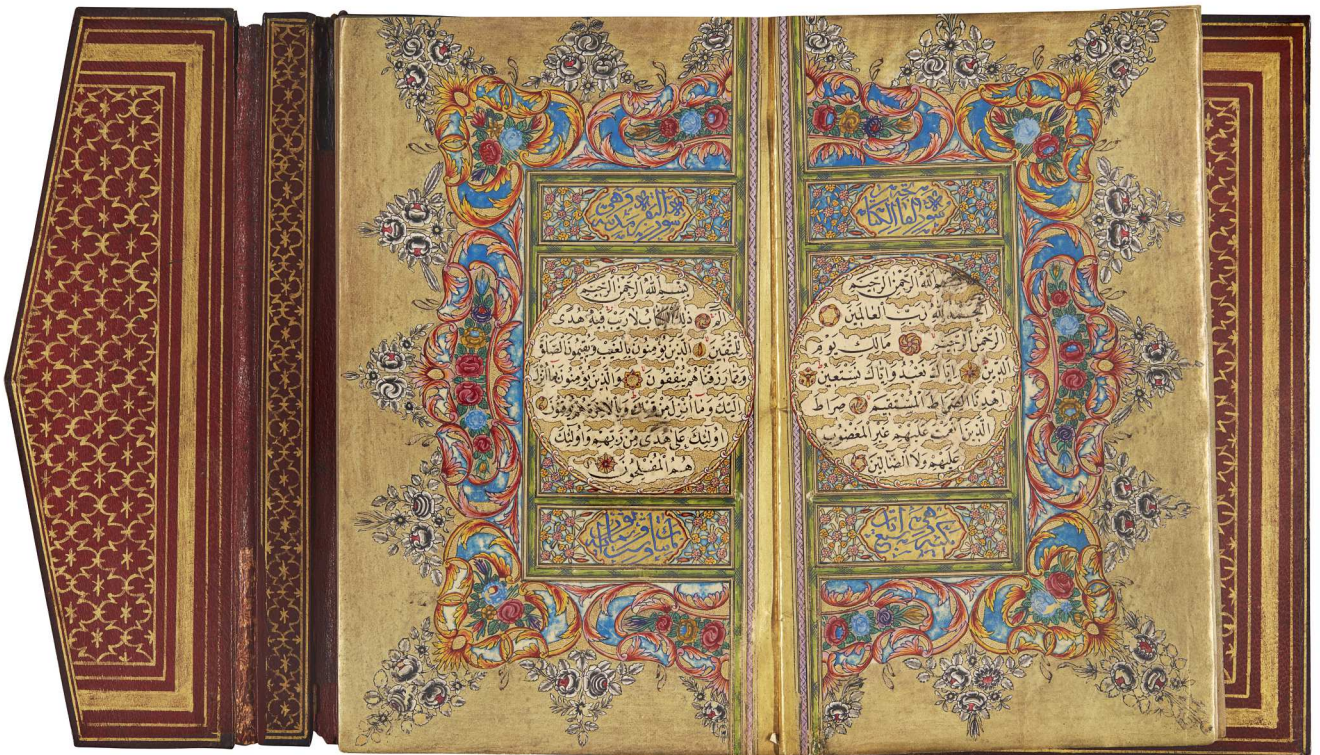 سورة فاتحة الكتاب
بسم الله الرحمن الرحيم
الحمد لله رب العالمين
الرحمن الرحيم مالك يوم
الدين اياك نعبد واياك نستعين
اهدنا الصراط المستقيم صراط
الذين انعمت عليهم غير المغضوب
عليهم ولا الضالين
وهي سبع
سورة البقرة وهي
بسم الله الرحمن الرحيم
الم ذلك الكتاب لا ريب فيه هدى
للمتقين الذين يؤمنون بالغيب ويقيمون الصلوة
ومما رزقناهم ينفقون والذين يؤمنون بما انزل
اليك وما انزل من قبلك وبالاخرة هم يوقنون
اولئك على هدى من ربهم واولئك
هم المفلحون